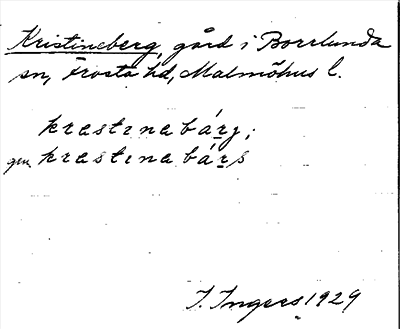 Kristineberg, gård i Borrlunda
sn, Frosta hd, Malmöhus l.
kræstɪnabárg;
gen. kræstɪnabárs
I. Ingers 1929